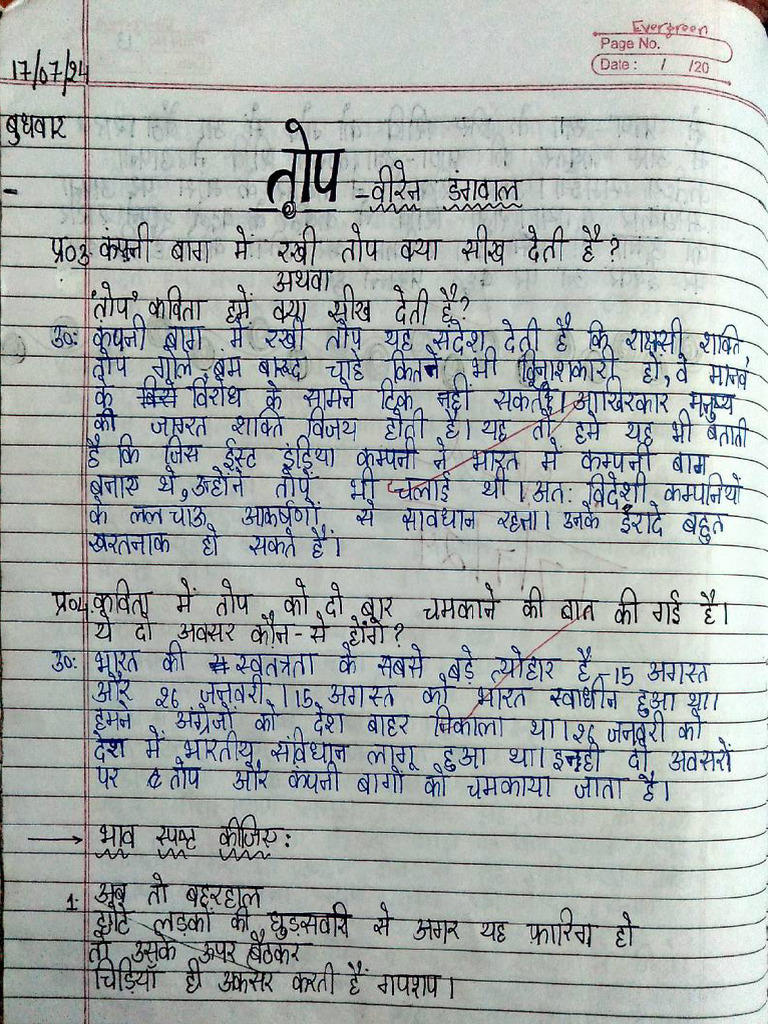 Evergreen
Page No.
Date : / /20
17/07/24
बुधवार
तोप - वीरेन डंगवाल
प्र०3 कंपनी बाग में रखी तोप क्या सीख देती है ?
अथवा
'तोप' कविता हमें क्या सीख देती है?
उ०: कंपनी बाग में रखी तोप यह संदेश देती है कि राक्षसी शक्ति,
तोप गोले-बम बारूद चाहे कितने भी विनाशकारी हो, वे मानव
के विरोध के सामने टिक नहीं सकते। आखिरकार मनुष्य
की जागरत शक्ति विजय होती है। यह तो हमें यह भी बताती
है कि जिस ईस्ट इंडिया कम्पनी ने भारत में कम्पनी बाग
बनाए थे, उन्होंने तोपें भी चलाई थी। अत: विदेशी कम्पनियों
के ललचाऊ आकर्षणों से सावधान रहना। उनके ईरादे बहुत
खतरनाक हो सकते हैं।
प्र०4 कविता में तोप को दो बार चमकाने की बात की गई है।
ये दो अवसर कौन-से होंगे ?
उ०: भारत की स्वतंत्रता के सबसे बड़े त्योहार है - 15 अगस्त
और 26 जनवरी। 15 अगस्त को भारत स्वाधीन हुआ था।
हमने अंग्रेजों को देश बाहर निकाला था। 26 जनवरी को
देश में भारतीय संविधान लागू हुआ था। इनही दो अवसरों
पर तोप और कंपनी बागों को चमकाया जाता है।
→ भाव स्पष्ट कीजिए :
1. अब तो बहरहाल
छोटे लड़कों की घुड़सवारि से अगर यह फ़ारिग हो
तो उसके ऊपर बैठकर
चिड़ियाँ ही अकसर करती हैं गपशप।